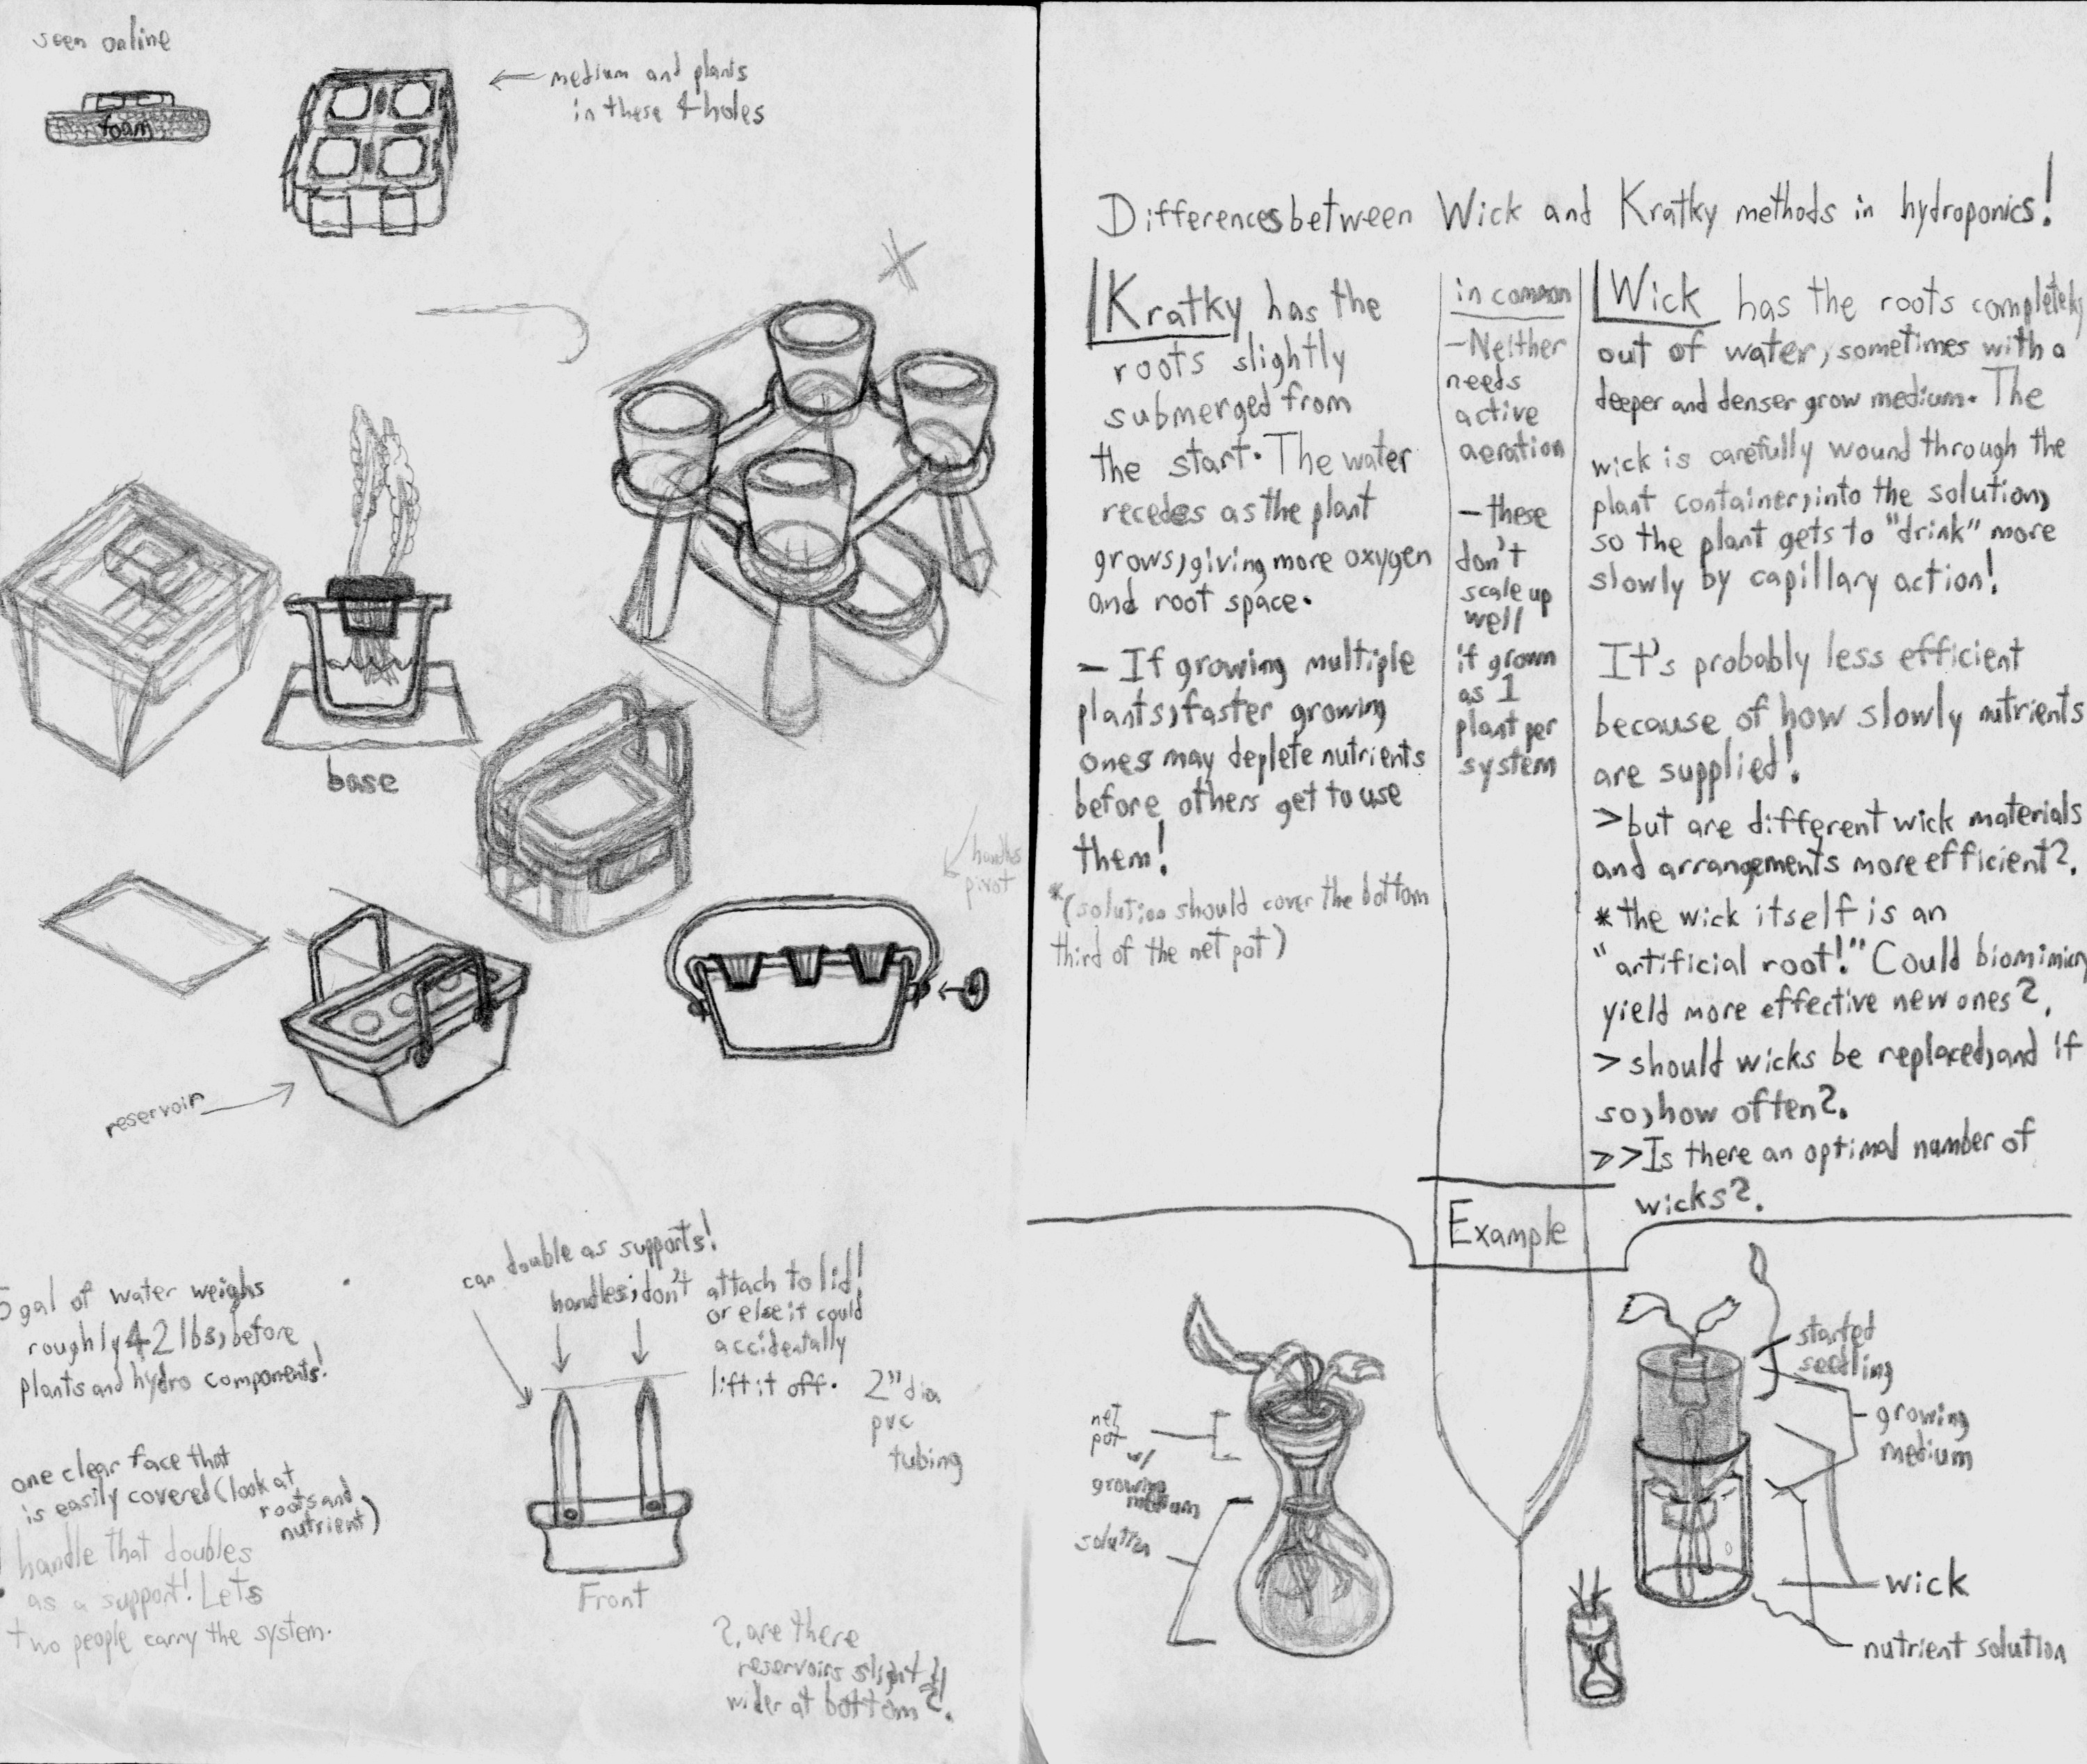 seen online
foam
← medium and plants
in these 4 holes
base
handles
pivot
reservoir
5 gal of water weighs
roughly 42 lbs, before
plants and hydro components!
one clear face that
is easily covered (look at
roots and
nutrient)
handle that doubles
as a support! Lets
two people carry the system.
can double as supports!
handles; don't attach to lid!
or else it could
accidentally
lift it off.
2" dia
pvc
tubing
Front
?, are there
reservoirs slightly
wider at bottom?.
Differences between Wick and Kratky methods in hydroponics!
Kratky has the
roots slightly
submerged from
the start. The water
recedes as the plant
grows, giving more oxygen
and root space.
– If growing multiple
plants, faster growing
ones may deplete nutrients
before others get to use
them!
*(solution should cover the bottom
third of the net pot)
in common
– Neither
needs
active
aeration
– these
don't
scale up
well
if grown
as 1
plant per
system
Wick has the roots completely
out of water, sometimes with a
deeper and denser grow medium. The
wick is carefully wound through the
plant container, into the solution,
so the plant gets to "drink" more
slowly by capillary action!
It's probably less efficient
because of how slowly nutrients
are supplied!
> but are different wick materials
and arrangements more efficient?.
* the wick itself is an
"artificial root!" Could biomimicry
yield more effective new ones?.
> should wicks be replaced, and if
so, how often?.
>> Is there an optimal number of
wicks?.
Example
net
pot
w/
growing
medium
solution
started
seedling
growing
medium
wick
nutrient solution